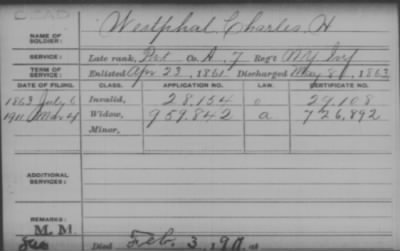 DEAD
NAME OF SOLDIER: Westphal, Charles H
SERVICE: Late rank, Pvt Co. A, 7 Reg't N.Y. Inf
TERM OF SERVICE: Enlisted Apr 23, 1861 Discharged May 8, 1863
DATE OF FILING. CLASS. APPLICATION NO. LAW. CERTIFICATE NO.
1863 July 6 Invalid, 28,154 29,108
1911 Mar 4 Widow, 959,842 a 726,892
Minor,
ADDITIONAL SERVICES:
REMARKS:
M. M.
Died Feb. 3, 1911 at